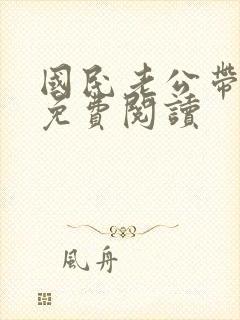 國民老公帶
免費閱讀
風舟